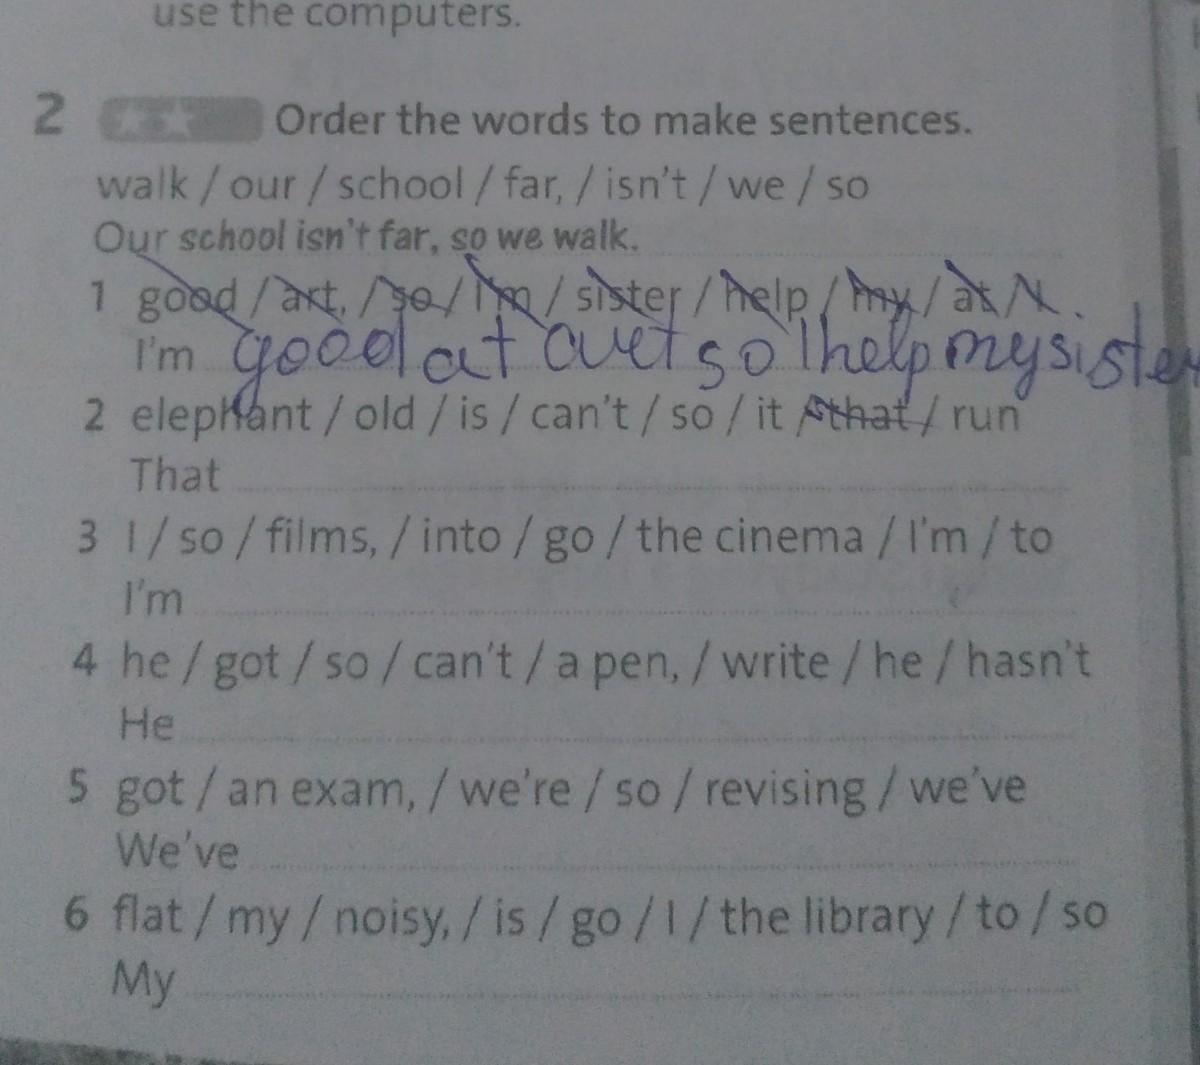 use the computers.
2 Order the words to make sentences.
walk / our / school / far, / isn't / we / so
Our school isn't far, so we walk.
1 good / art, / so / I'm / sister / help / my / at / I
I'm good at art so I help my sister
2 elephant / old / is / can't / so / it / that / run
That
3 I / so / films, / into / go / the cinema / I'm / to
I'm
4 he / got / so / can't / a pen, / write / he / hasn't
He
5 got / an exam, / we're / so / revising / we've
We've
6 flat / my / noisy, / is / go / I / the library / to / so
My